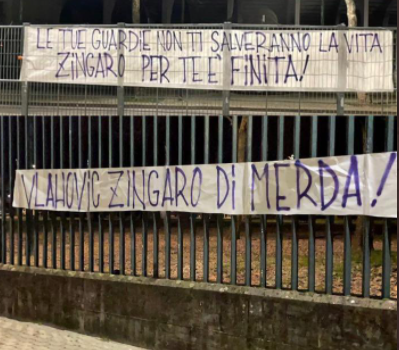 LE TUE GUARDIE NON TI SALVERANNO LA VITA
ZINGARO PER TE È FINITA!
VLAHOVIC ZINGARO DI MERDA!